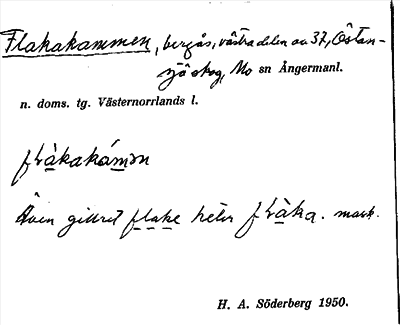 Flakakammen, bergås, västra delen av 37, Östan-
sjö skog, Mo sn Ångermanl.
n. doms. tg. Västernorrlands l.
flàkakámən
Även gillret flake heter flàka. mask.
H. A. Söderberg 1950.